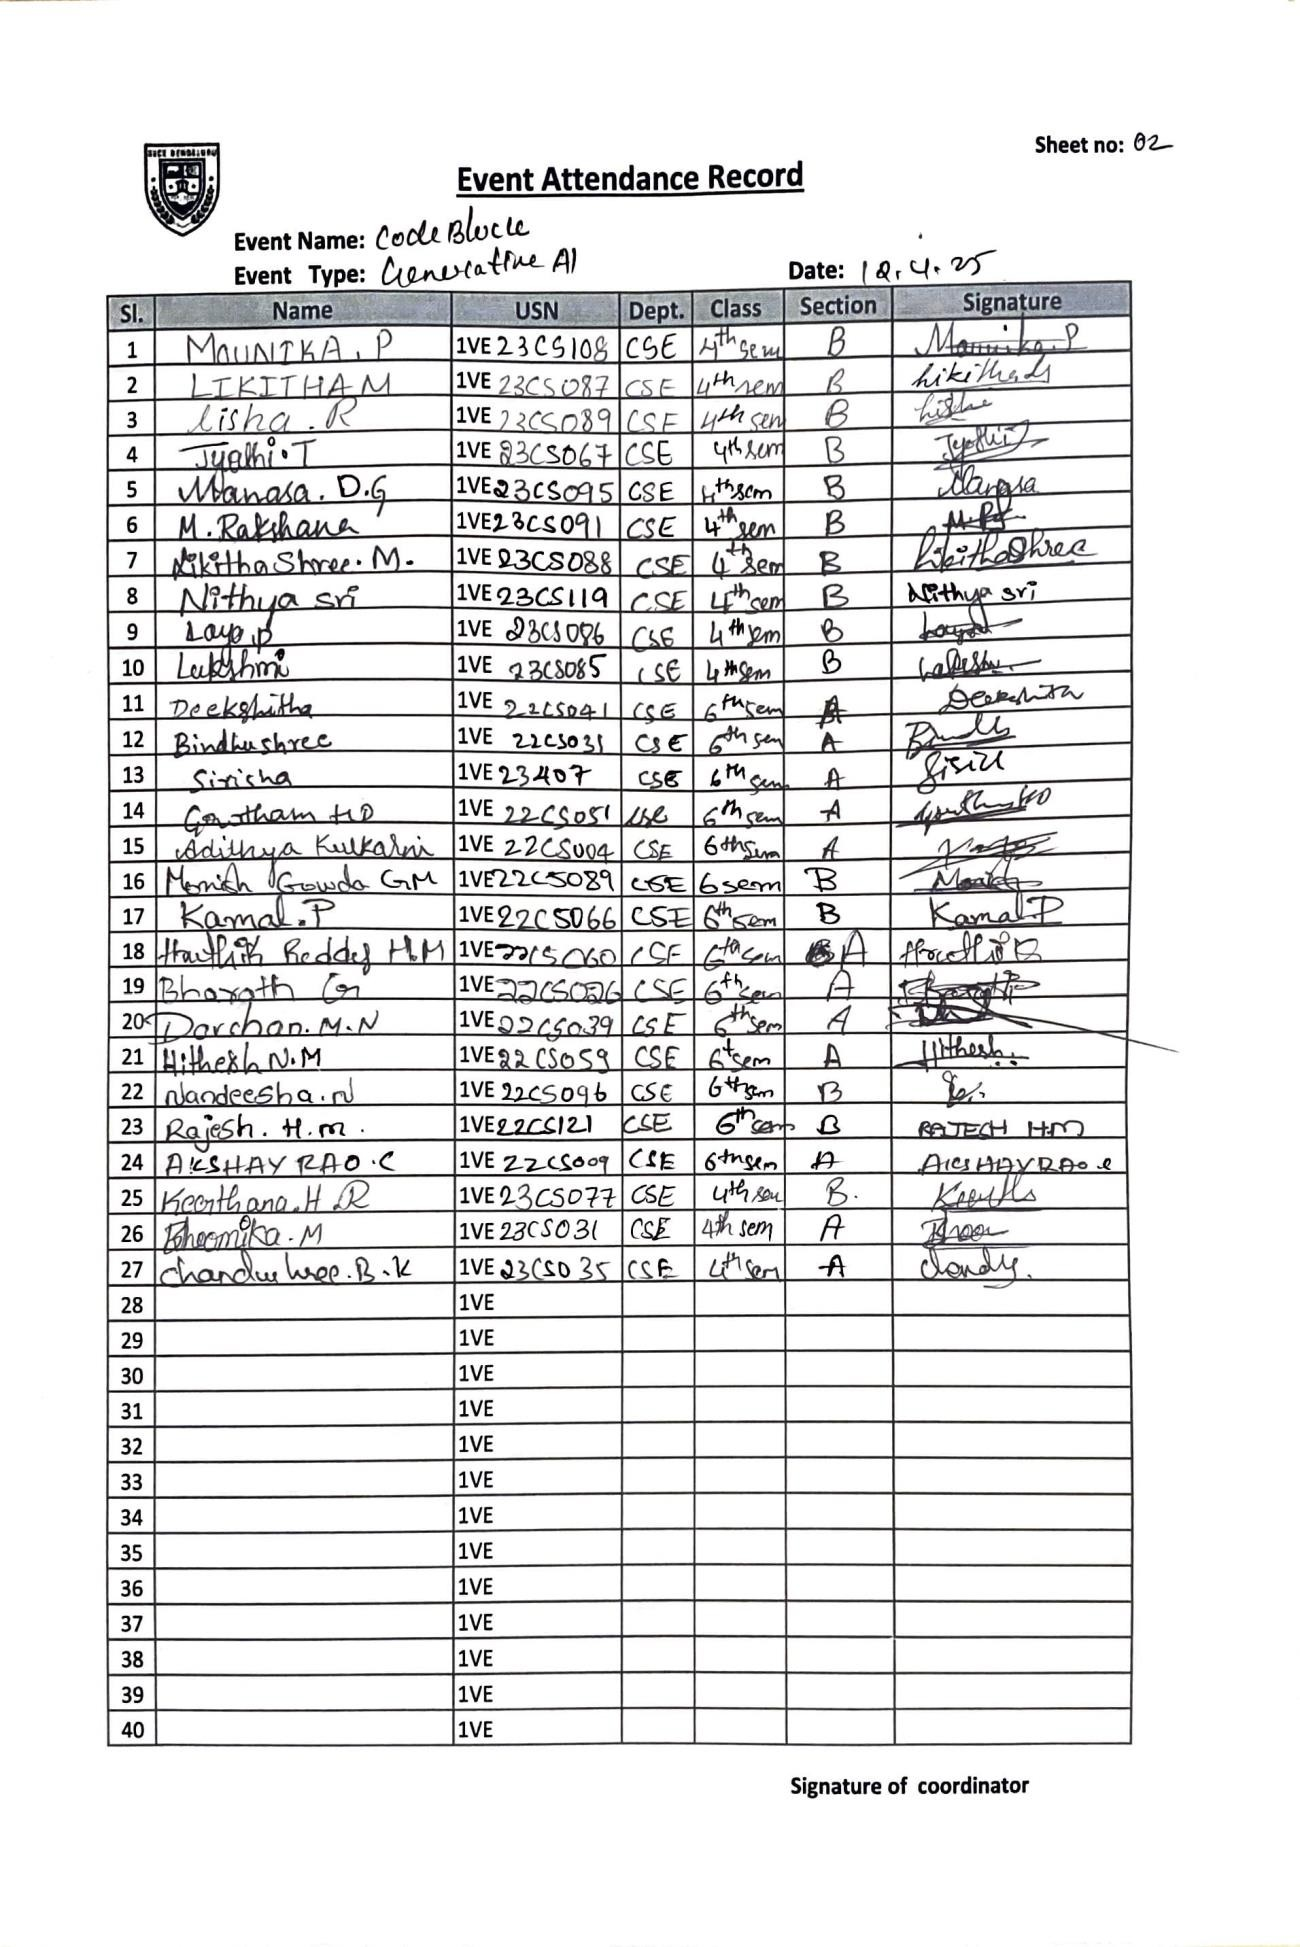 Sheet no: 02
SVCE BENGALURU
Event Attendance Record
Event Name: CodeBlock
Event Type: Generative AI Date: 12.4.25
Sl. Name USN Dept. Class Section Signature
1 MOUNIKA.P 1VE23CS108 CSE 4th sem B Mounika.P
2 LIKITHAM 1VE 23CS087 CSE 4th sem B
3 lisha.R 1VE 23CS089 CSE 4th sem B
4 Jyothi.T 1VE 23CS067 CSE 4th sem B Jyothi
5 Manasa.D.G 1VE23CS095 CSE 4th sem B Manasa
6 M.Rakshana 1VE23CS091 CSE 4th sem B
7 LikithaShree.M. 1VE23CS088 CSE 4th sem B LikithaShree
8 Nithya sri 1VE23CS119 CSE 4th sem B Nithya sri
9 Laya.p 1VE 23CS086 CSE 4th sem B
10 Lakshmi 1VE 23CS085 CSE 4th sem B
11 Deekshitha 1VE 22CS041 CSE 6th sem A Deekshitha
12 Bindhushree 1VE 22CS031 CSE 6th sem A
13 Sirisha 1VE23407 CSE 6th sem A
14 Gowtham HD 1VE 22CS051 CSE 6th sem A
15 Adithya Kulkarni 1VE 22CS004 CSE 6th sem A
16 Monish Gowda GM 1VE22CS089 CSE 6 sem B
17 Kamal.P 1VE22CS066 CSE 6th sem B Kamal.P
18 Harthik Reddy H.M 1VE22CS060 CSE 6th sem A
19 Bharath G 1VE22CS026 CSE 6th sem A
20 Darshan.M.N 1VE22CS039 CSE 6th sem A
21 Hithesh N.M 1VE22CS059 CSE 6t sem A Hithesh.
22 Nandeesha.N 1VE 22CS096 CSE 6th sem B
23 Rajesh.H.m. 1VE22CS121 CSE 6th sem B RAJESH H.M
24 AKSHAY RAO.C 1VE 22CS009 CSE 6th sem A AKSHAYRAO.C
25 Keerthana.H.R 1VE23CS077 CSE 4th sem B.
26 Bhoomika.M 1VE23CS031 CSE 4th sem A
27 chandushree.B.K 1VE 23CS035 CSE 4th sem A
28 1VE
29 1VE
30 1VE
31 1VE
32 1VE
33 1VE
34 1VE
35 1VE
36 1VE
37 1VE
38 1VE
39 1VE
40 1VE
Signature of coordinator